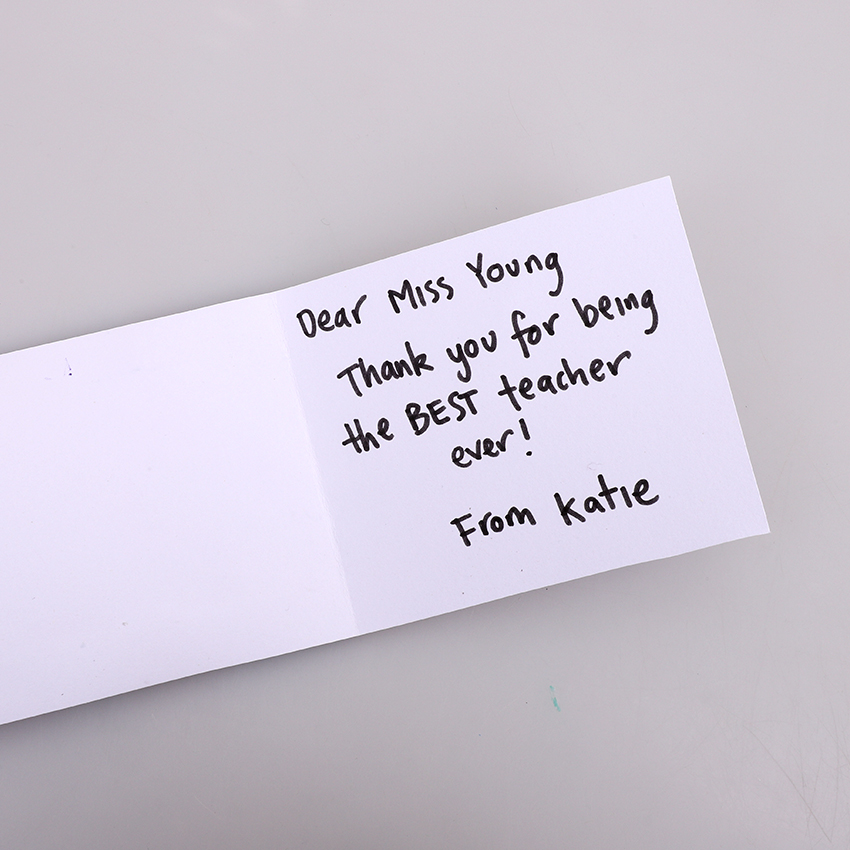 Dear Miss Young
Thank you for being
the BEST teacher
ever!
From Katie